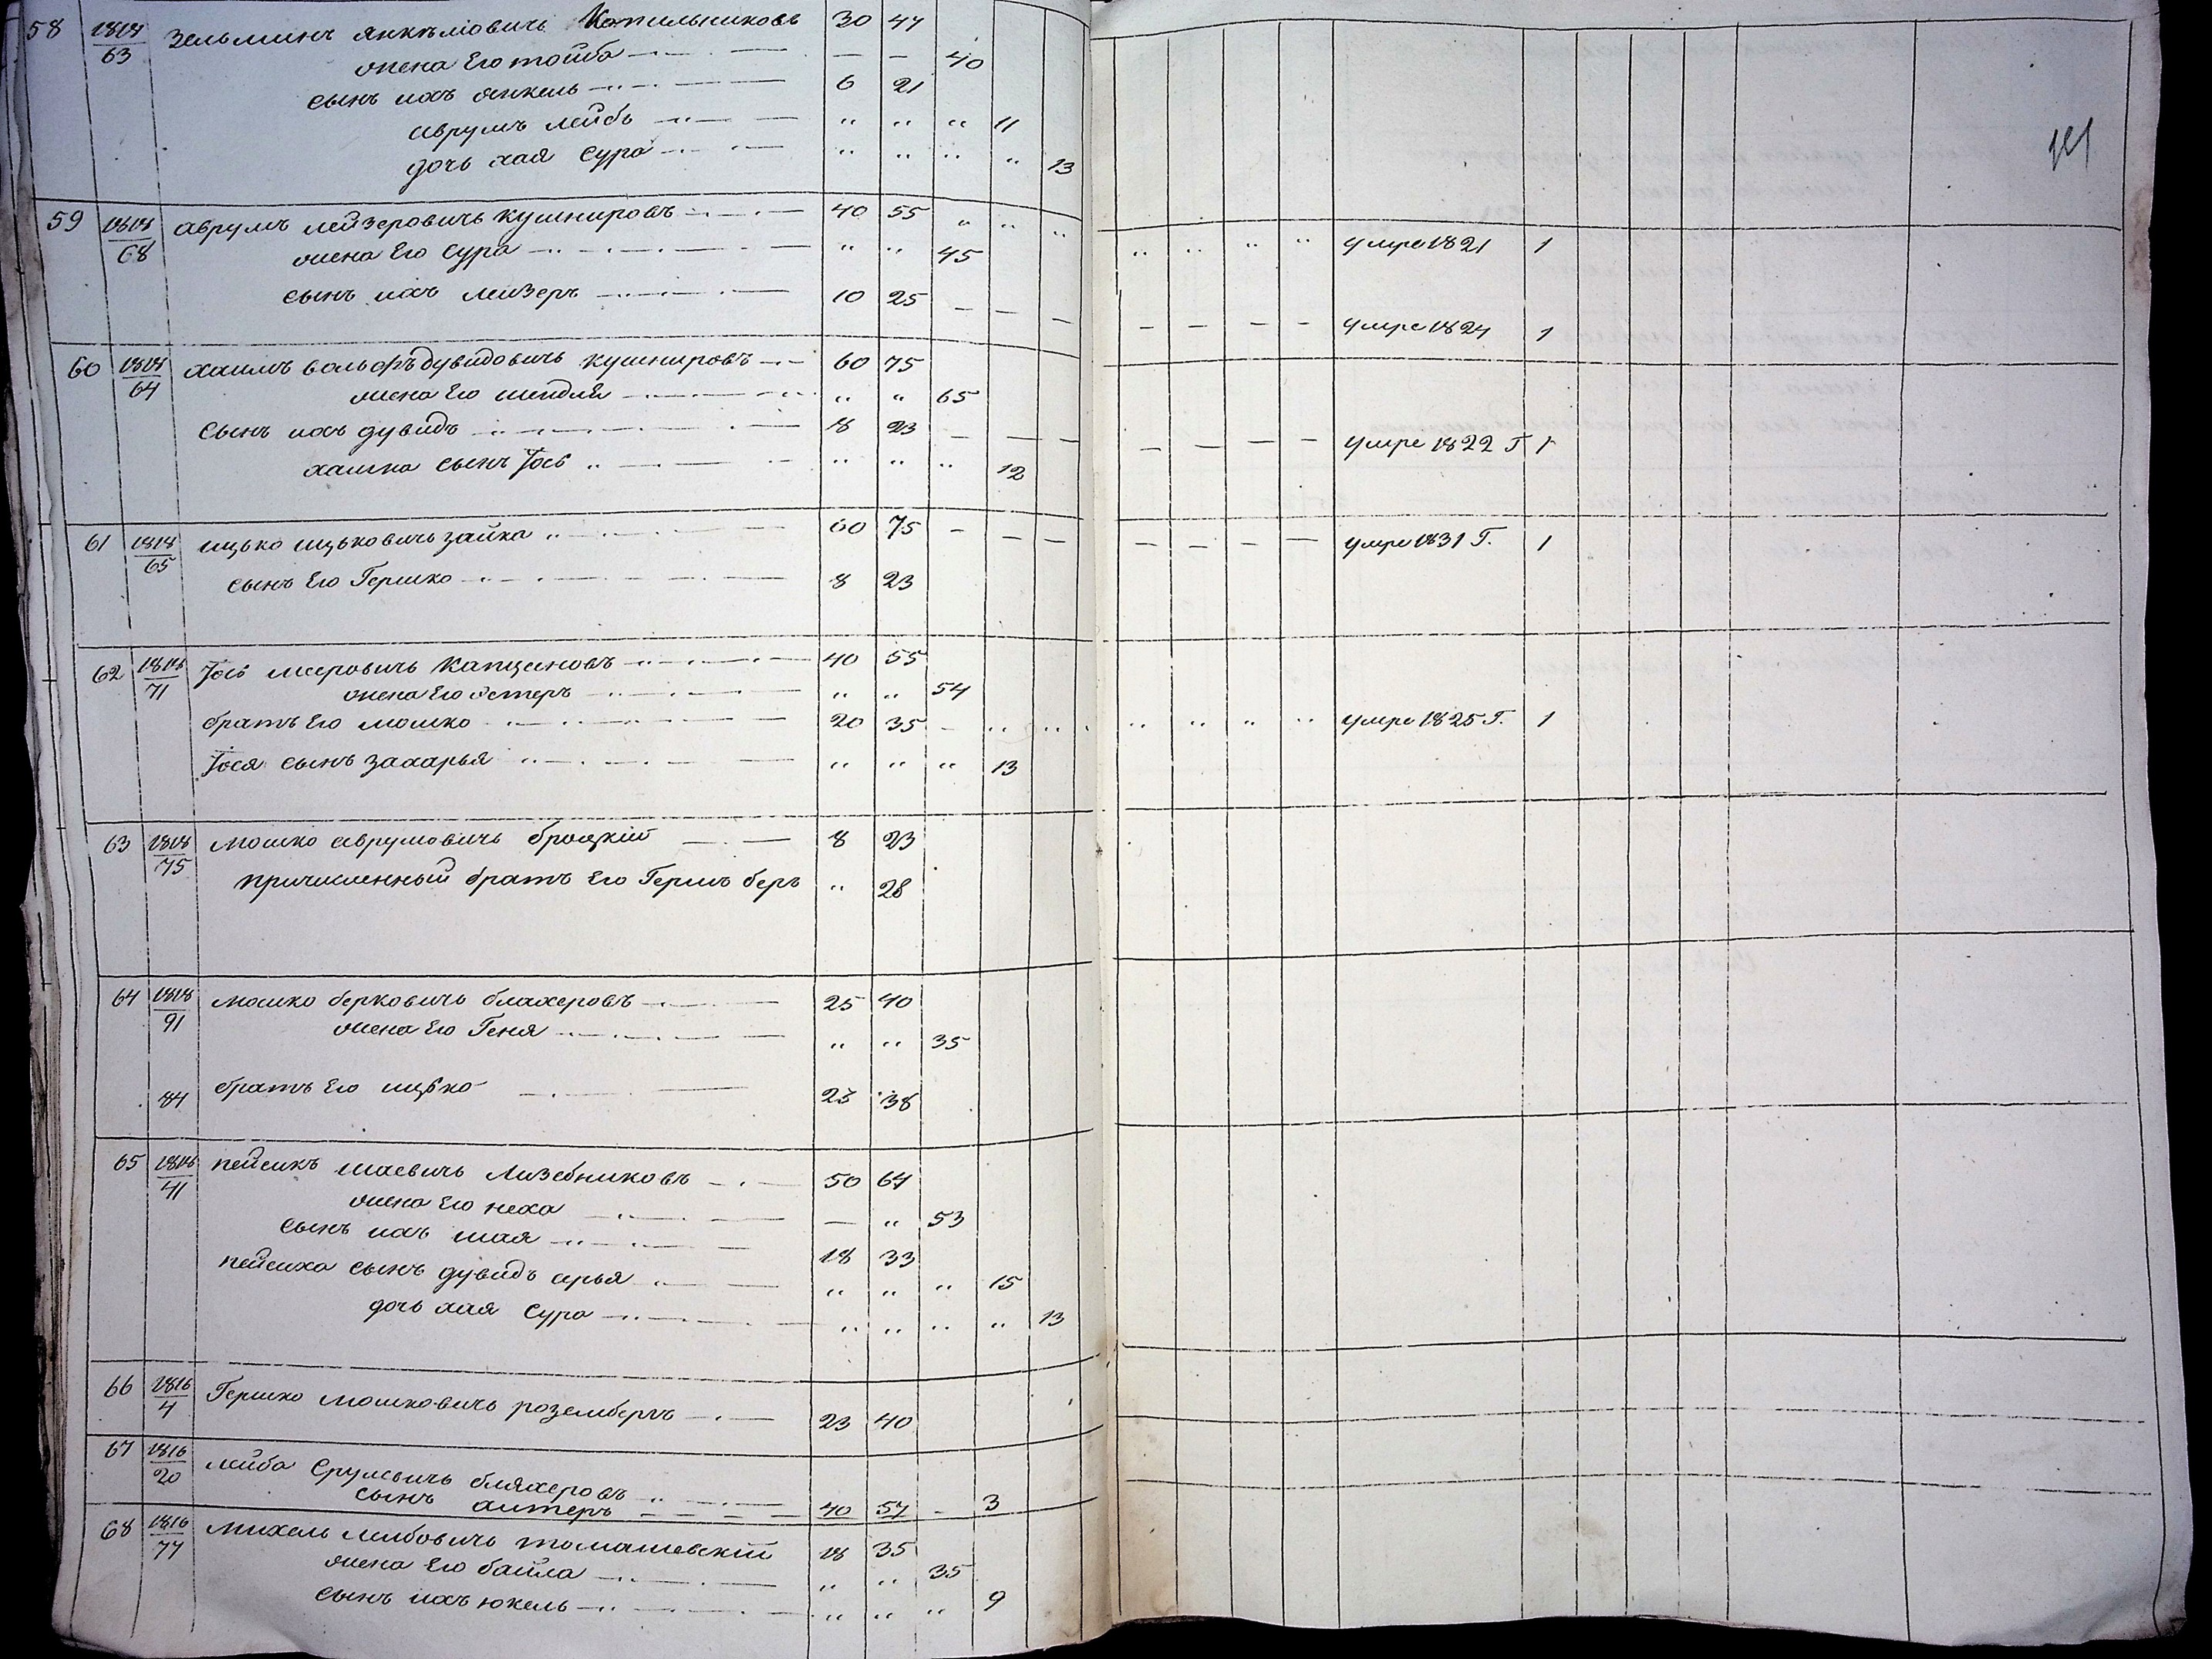 58 1818/63 Зельминъ Янкеліовичъ Котильниковъ 30 44
жена Его тойба — — 40
сынъ ихъ янкель 6 21
Аврумъ лейбъ „ „ „ 11
дочь хая Сура „ „ „ „ 13
141
59 1818/68 Аврумъ лейзеровичъ кушнировъ 40 55 „ „ „
жена Его Сура „ „ 45 „ „ „ „ умре 1821 1
сынъ ихъ лейзеръ 10 25 — — — — — — — умре 1824 1
60 1818/64 хаимъ вольфъ дувидовичъ кушнировъ 60 75
жена Его шейдля „ „ 65
Сынъ ихъ дувидъ 8 23 — — — — — — — умре 1822 Г 1
хаима сынъ Іось „ „ „ 12
61 1818/65 ицько ицьковичъ зайка 60 75 — — — — — — — умре 1831 Г. 1
сынъ Его Гершко 8 23
62 1818/71 Іось меровичъ Капцановъ 40 55
жена Его Эстеръ „ „ 54
братъ Его мошко 20 35 — „ „ „ „ „ „ умре 1825 Г. 1
Іося сынъ захарья „ „ „ 13
63 1818/75 мошко аврумовичъ броцкій 8 23
причисленный братъ Его Гершъ беръ „ 28
64 1818/91 мошко берковичъ бляхеровъ 25 40
жена Его Геня „ „ 35
84 братъ Его ицько 23 38
65 1818/41 пейсихъ шаевичъ Лизебниковъ 50 64
жена Его неха — „ 53
Сынъ ихъ шая 18 33
пейсиха сынъ дувидъ арья „ „ „ 15
дочь хая Сура „ „ „ „ 13
66 1816/4 Гершко мошковичъ розембергъ 23 40
67 1816/20 лейба Срулевичъ бляхеровъ
сынъ алтеръ 40 57 — 3
68 1816/77 михель лейбовичъ томашевскій 18 35
жена Его байла „ „ 35
сынъ ихъ юкель „ „ „ 9